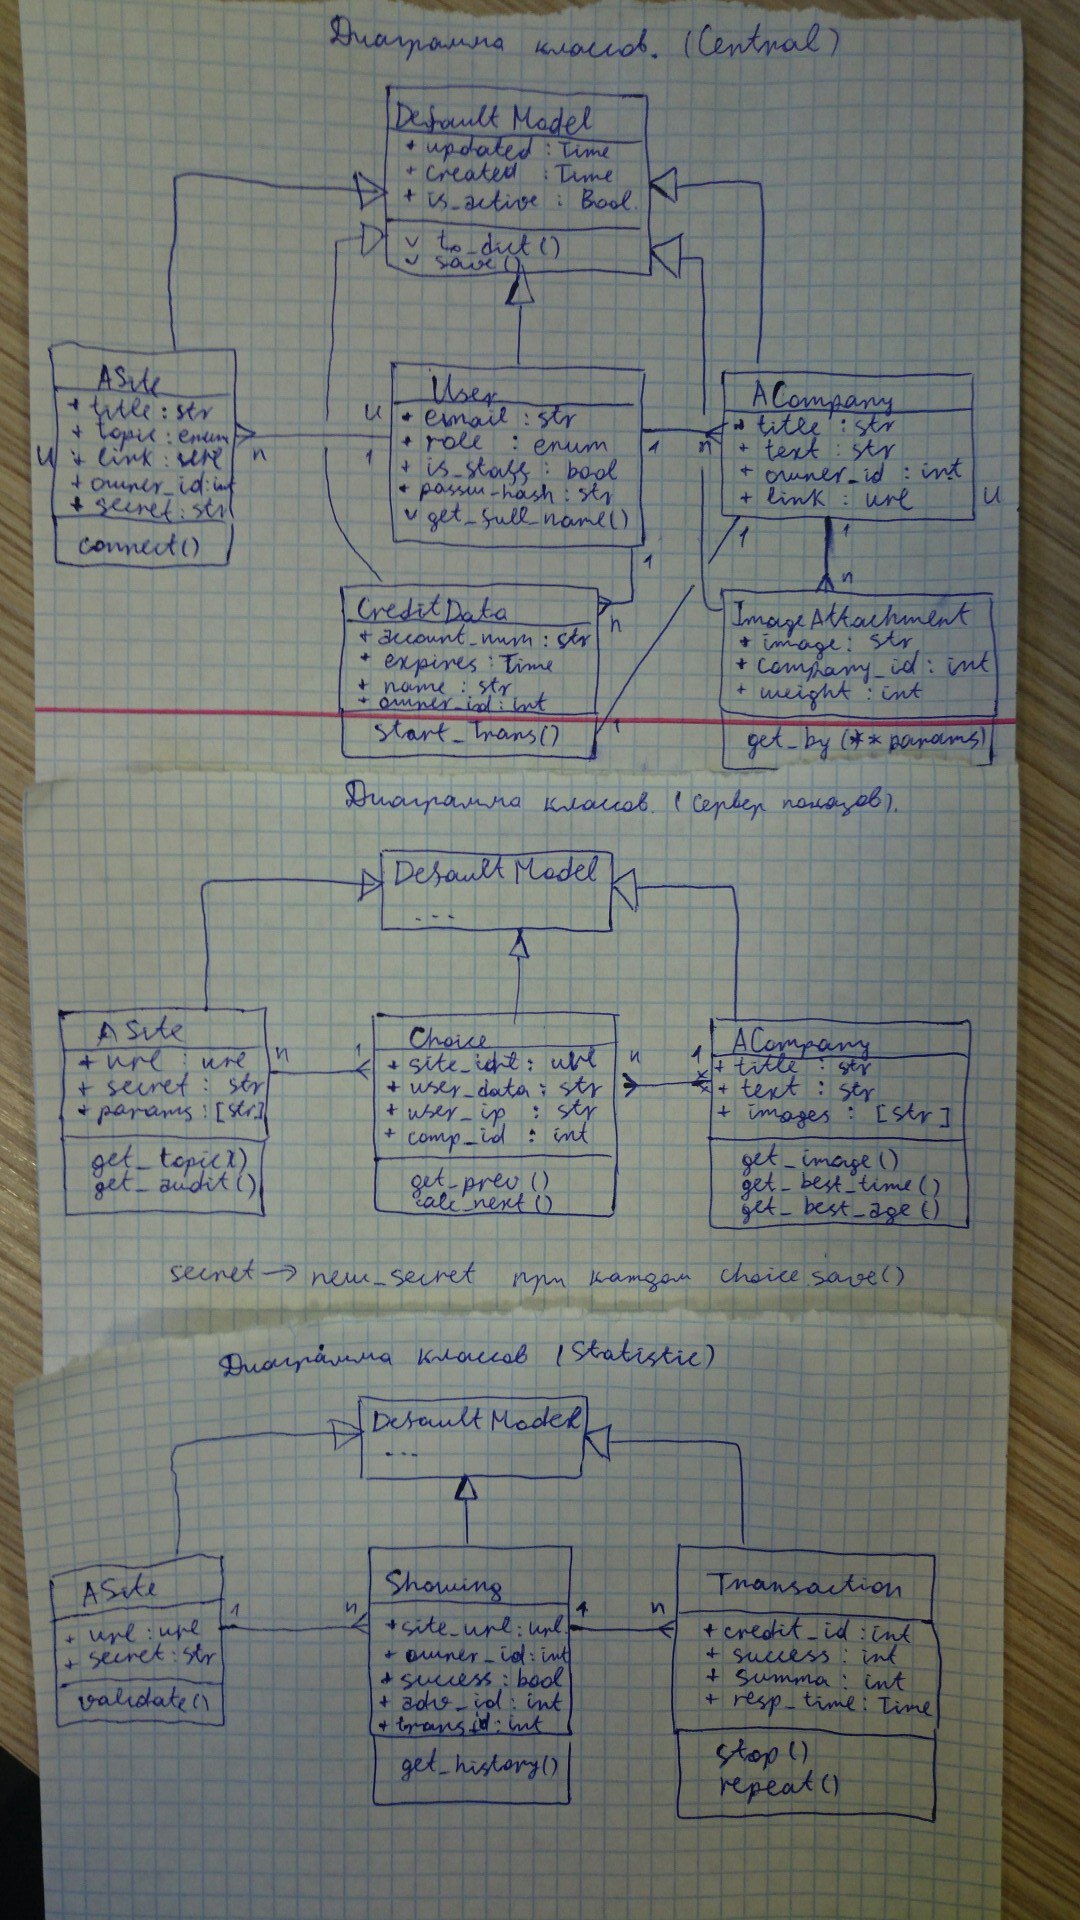 Диаграмма классов. (Central)
Default Model
+ updated : Time
+ created : Time
+ is_active : Bool.
v to_dict()
v save()
ASite
+ title : str
+ topic : enum
+ link : url
+ owner_id : int
+ secret : str
connect()
U
n
1
U
User
+ email : str
+ role : enum
+ is_staff : bool
+ passw_hash : str
v get_full_name()
1
n
ACompany
+ title : str
+ text : str
+ owner_id : int
+ link : url
U
1
n
1
1
n
CreditData
+ account_num : str
+ expires : Time
+ name : str
+ owner_id : int
start_trans()
1
ImageAttachment
+ image : str
+ company_id : int
+ weight : int
get_by (** params)
Диаграмма классов. (Сервер показов).
Default Model
...
ASite
+ url : url
+ secret : str
+ params : [str]
get_topic()
get_audit()
n
1
Choice
+ site_idt : url
+ user_data : str
+ user_ip : str
+ comp_id : int
get_prev()
calc_next()
n
1
ACompany
+ title : str
+ text : str
+ images : [str]
get_image()
get_best_time()
get_best_age()
secret → new_secret при каждом choice.save()
Диаграмма классов (Statistic)
Default Model
...
ASite
+ url : url
+ secret : str
validate()
1
n
Showing
+ site_url : url.
+ owner_id : int
+ success : bool
+ adv_id : int
+ trans_id : int
get_history()
1
n
Transaction
+ credit_id : int
+ success : int
+ summa : int
+ resp_time : Time
stop()
repeat()